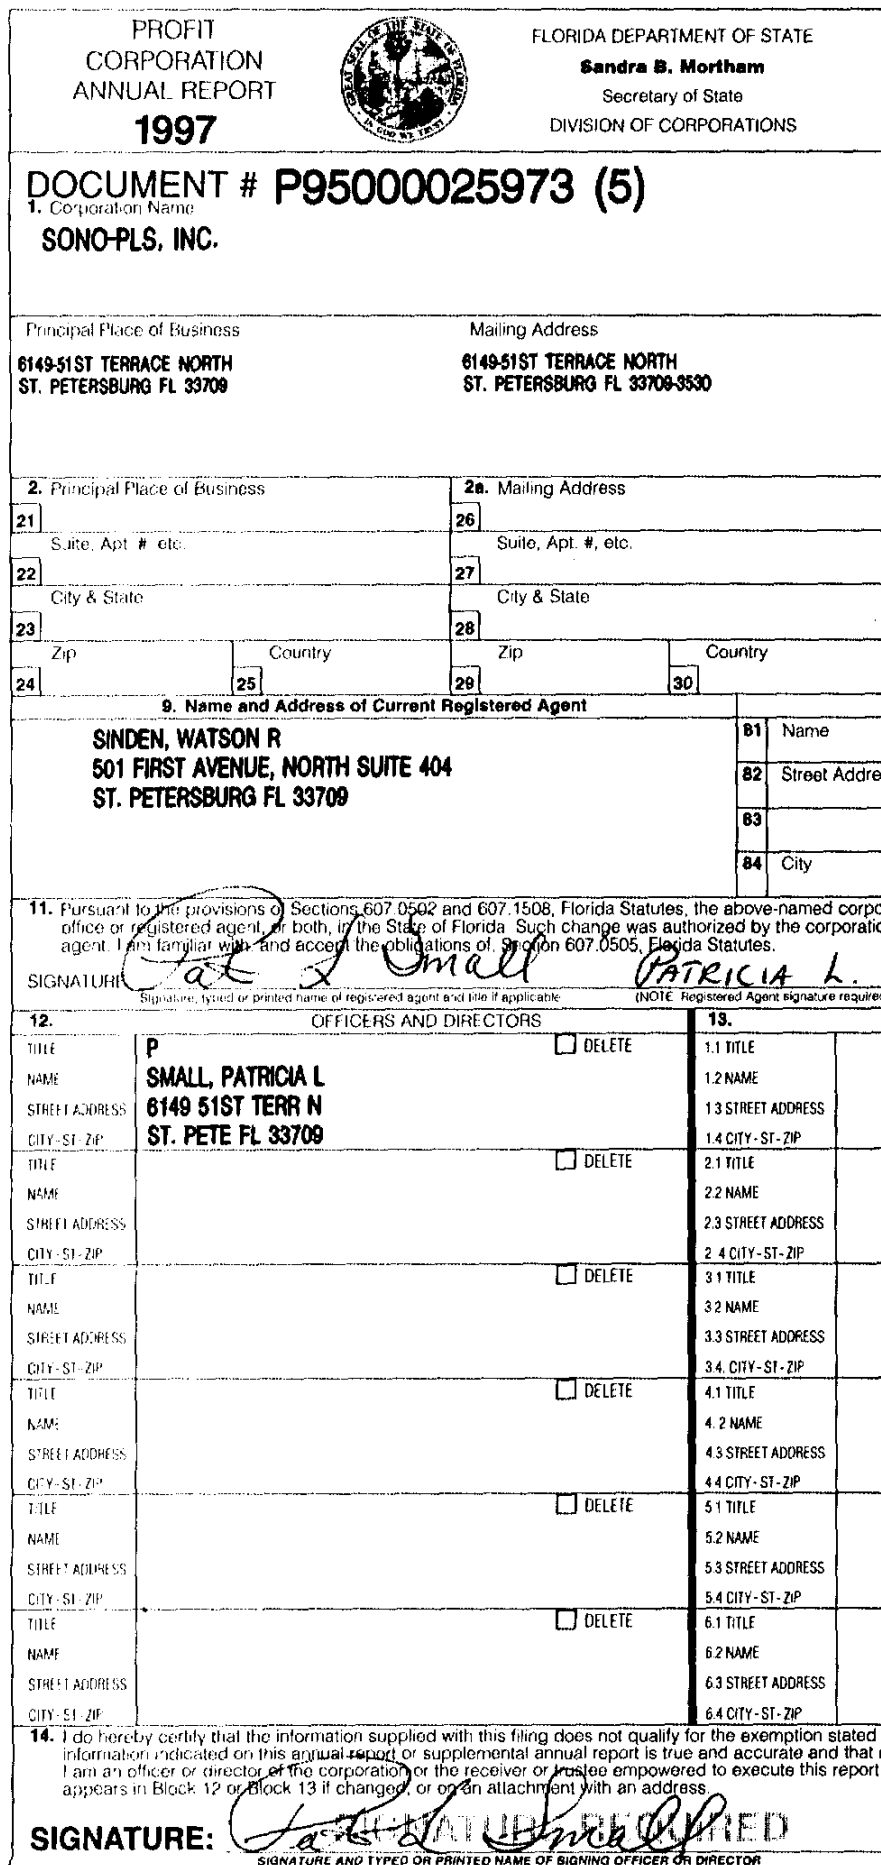 PROFIT
CORPORATION
ANNUAL REPORT
1997
GREAT SEAL OF THE STATE OF FLORIDA
IN GOD WE TRUST
FLORIDA DEPARTMENT OF STATE
Sandra B. Mortham
Secretary of State
DIVISION OF CORPORATIONS
DOCUMENT # P95000025973 (5)
1. Corporation Name
SONO-PLS, INC.
Principal Place of Business
6149-51ST TERRACE NORTH
ST. PETERSBURG FL 33709
Mailing Address
6149-51ST TERRACE NORTH
ST. PETERSBURG FL 33709-3530
2. Principal Place of Business
2a. Mailing Address
21
26
Suite, Apt. #, etc.
Suite, Apt. #, etc.
22
27
City & State
City & State
23
28
Zip
Country
Zip
Country
24
25
29
30
9. Name and Address of Current Registered Agent
SINDEN, WATSON R
501 FIRST AVENUE, NORTH SUITE 404
ST. PETERSBURG FL 33709
81 Name
82 Street Addre
83
84 City
11. Pursuant to the provisions of Sections 607.0502 and 607.1508, Florida Statutes, the above-named corpo
office or registered agent, or both, in the State of Florida. Such change was authorized by the corporatio
agent. I am familiar with, and accept the obligations of, Section 607.0505, Florida Statutes.
SIGNATURE Pat L Small PATRICIA L.
Signature, typed or printed name of registered agent and title if applicable
(NOTE: Registered Agent signature require
12. OFFICERS AND DIRECTORS
13.
TITLE P DELETE 1.1 TITLE
NAME SMALL, PATRICIA L 1.2 NAME
STREET ADDRESS 6149 51ST TERR N 1.3 STREET ADDRESS
CITY-ST-ZIP ST. PETE FL 33709 1.4 CITY-ST-ZIP
TITLE DELETE 2.1 TITLE
NAME 2.2 NAME
STREET ADDRESS 2.3 STREET ADDRESS
CITY-ST-ZIP 2.4 CITY-ST-ZIP
TITLE DELETE 3.1 TITLE
NAME 3.2 NAME
STREET ADDRESS 3.3 STREET ADDRESS
CITY-ST-ZIP 3.4. CITY-ST-ZIP
TITLE DELETE 4.1 TITLE
NAME 4.2 NAME
STREET ADDRESS 4.3 STREET ADDRESS
CITY-ST-ZIP 4.4 CITY-ST-ZIP
TITLE DELETE 5.1 TITLE
NAME 5.2 NAME
STREET ADDRESS 5.3 STREET ADDRESS
CITY-ST-ZIP 5.4 CITY-ST-ZIP
TITLE DELETE 6.1 TITLE
NAME 6.2 NAME
STREET ADDRESS 6.3 STREET ADDRESS
CITY-ST-ZIP 6.4 CITY-ST-ZIP
14. I do hereby certify that the information supplied with this filing does not qualify for the exemption stated
information indicated on this annual report or supplemental annual report is true and accurate and that
I am an officer or director of the corporation or the receiver or trustee empowered to execute this report
appears in Block 12 or Block 13 if changed, or on an attachment with an address.
SIGNATURE: Pat L Small
SIGNATURE REQUIRED
SIGNATURE AND TYPED OR PRINTED NAME OF SIGNING OFFICER OR DIRECTOR